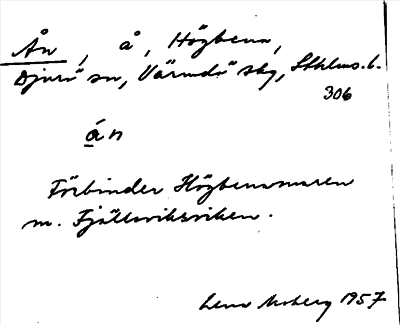 Ån, å, Högbena,
Djurö sn, Värmdö skg, Sthlms l.
306
ån
Förbinder Högbenamaren
m. Fjällsviksviken.
Lena Moberg 1957